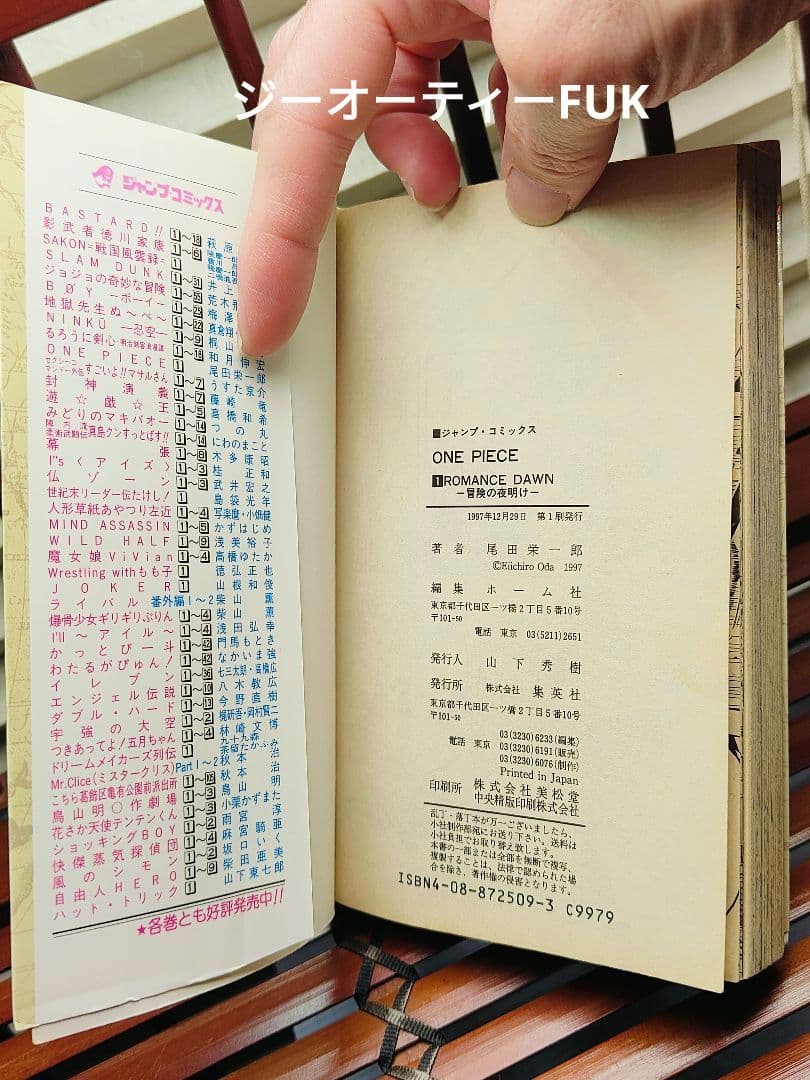 ジーオーティーFUK
ジャンプ・コミックス
BASTARD!! 1〜18 萩原
影武者徳川家康 1〜6
SAKON=戦国風雲録= 1
SLAM DUNK 1〜31 井上
ジョジョの奇妙な冒険 荒木飛
BØY ―ボーイ― 梅澤
地獄先生ぬ〜べ〜 真倉翔
NINKŪ ―忍空― 1〜9 桐山
るろうに剣心・明治剣客浪漫譚 1〜18 和月伸宏
ONE PIECE 尾田栄一郎
セクシーコマンドー外伝すごいよ!!マサルさん 1〜7 うすた京介
封神演義 藤崎竜
遊☆戯☆王 1〜5 高橋和希
みどりのマキバオー 1〜14 つの丸
陣内流柔術武闘伝真島クンすっとばす!! 1〜14 にわのまこと
幕張 1〜6 木多康昭
I"s〈アイズ〉 1〜3 桂正和
仏ゾーン 1〜3 武井宏之
世紀末リーダー伝たけし! 1 島袋光年
人形草紙あやつり左近 1〜4 写楽麿・小畑健
MIND ASSASSIN 1〜5 かずはじめ
WILD HALF 1〜9 浅美裕子
魔女娘ViVian 1〜4 高橋ゆたか
Wrestling withもも子 1 徳弘正也
JOKER 1 山根和俊
ライバル 番外編1〜2 柴山薫
爆骨少女ギリギリぷりん 1〜4 柴山薫
I'll 〜アイル〜 1〜4 浅田弘幸
かっとび一斗 門馬もとき
わたるがぴゅん! なかいま強
イレブン 七三太朗・高橋広
エンジェル伝説 1〜10 八木教広
ダブル・ハード 今野直樹
宇強の大空 1〜2 梶研吾・岡村賢二
つきあってよ!五月ちゃん 1〜4 林崎文博
ドリームメイカーズ列伝 1 九十九森 茶留たかふみ
Mr.Clice(ミスタークリス) Part 1〜2 秋本治
こちら葛飾区亀有公園前派出所 秋本治
鳥山明〇作劇場 1〜3 鳥山明
花さか天使テンテンくん 1〜3 小栗かずまた
ショッキングBOY 1〜2 雨宮淳
快傑蒸気探偵団 1〜4 麻宮騎亜
風のシモン 1〜2 坂口いく
自由人HERO 1〜9 柴田亜美
ハット・トリック 1 山下東七郎
★各巻とも好評発売中!!
■ジャンプ・コミックス
ONE PIECE
1 ROMANCE DAWN
―冒険の夜明け―
1997年12月29日 第1刷発行
著者 尾田栄一郎
©Eiichiro Oda 1997
編集 ホーム社
東京都千代田区一ツ橋2丁目5番10号
〒101-50
電話 東京 03(5211)2651
発行人 山下秀樹
発行所 株式会社 集英社
東京都千代田区一ツ橋2丁目5番10号
〒101-50
03(3230)6233(編集)
電話 東京 03(3230)6191(販売)
03(3230)6076(制作)
Printed in Japan
印刷所 株式会社美松堂
中央精版印刷株式会社
乱丁・落丁本が万一ございましたら、
小社制作部宛にお送り下さい。送料は
小社負担でお取り替え致します。
本書の一部または全部を無断で複写、
複製することは、法律で認められた場
合を除き、著作権の侵害となります。
ISBN4-08-872509-3 C9979